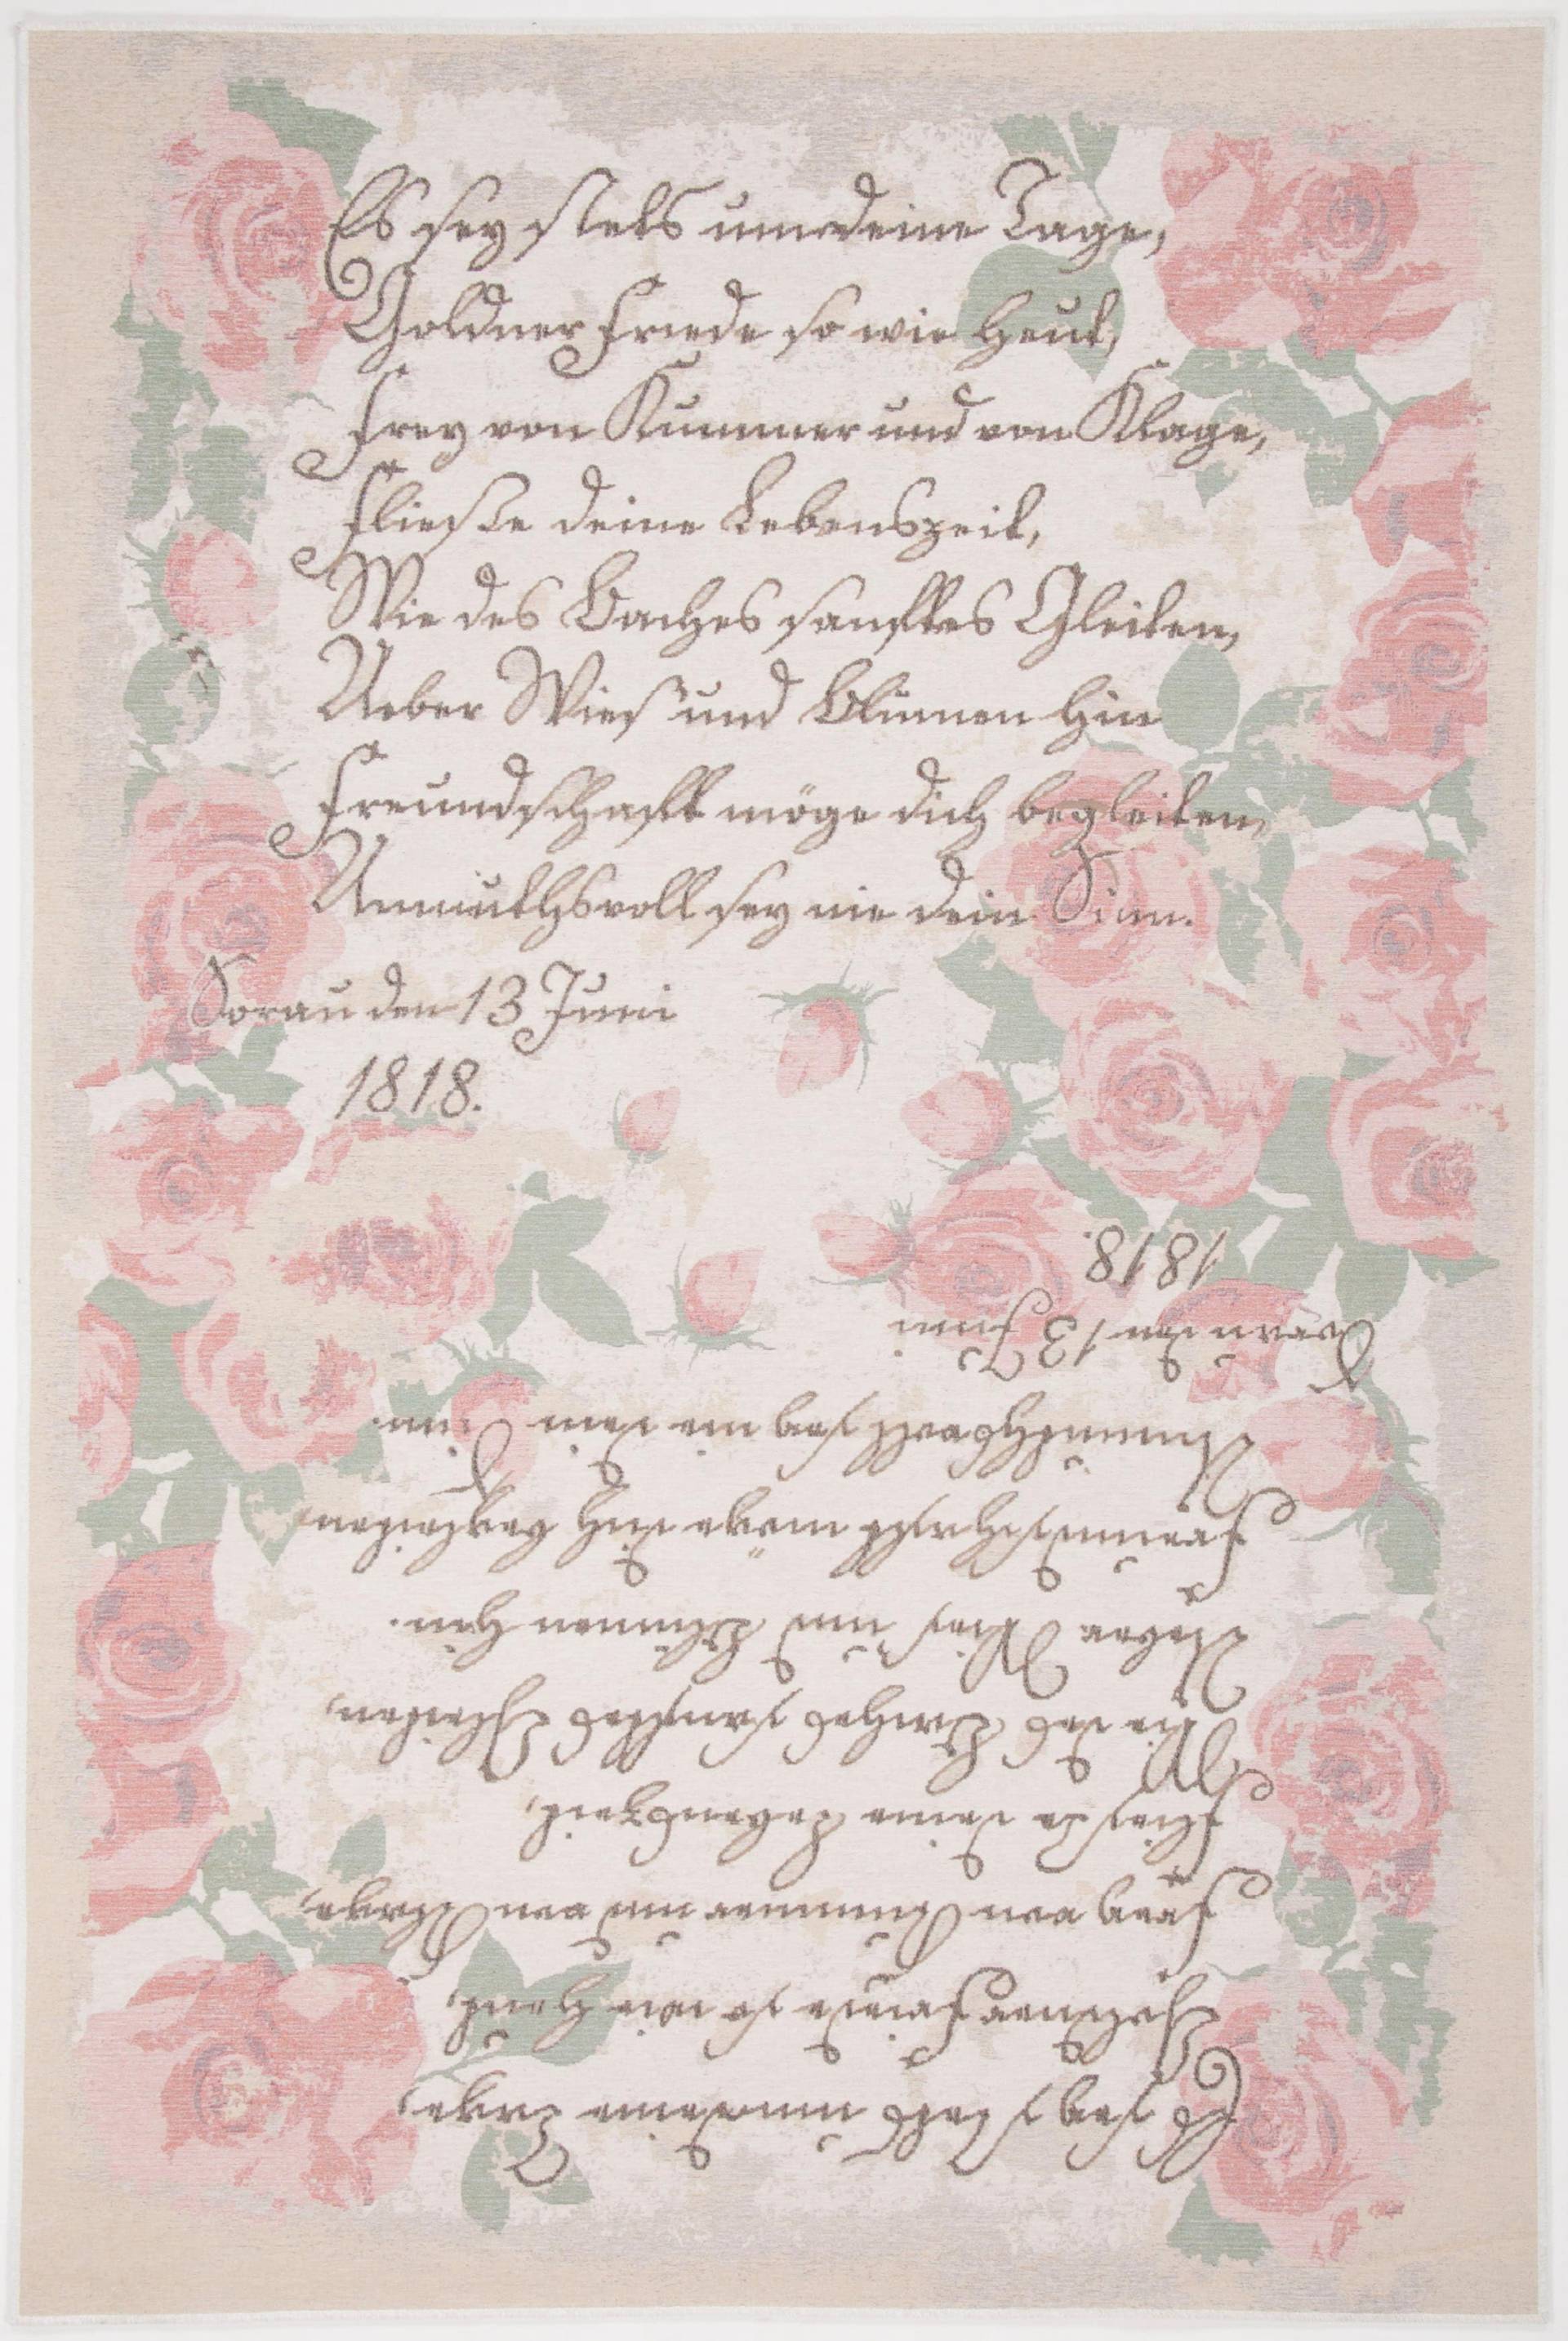 Es sey stets um deine Tage,
Goldner Friede so wie Heut,
Frey von Kummer und von Klage,
Fließe deine Lebenszeit,
Wie des Baches sanftes Gleiten,
Ueber Wies' und Blumen hin
Freundschaft möge dich begleiten,
Unmuthsvoll sey nie dein Sinn.
Sorau den 13 Juni
1818.
Es sey stets um deine Tage,
Goldner Friede so wie Heut,
Frey von Kummer und von Klage,
Fließe deine Lebenszeit,
Wie des Baches sanftes Gleiten,
Ueber Wies' und Blumen hin.
Freundschaft möge dich begleiten,
Unmuthsvoll sey nie dein Sinn.
Sorau den 13 Juni
1818.